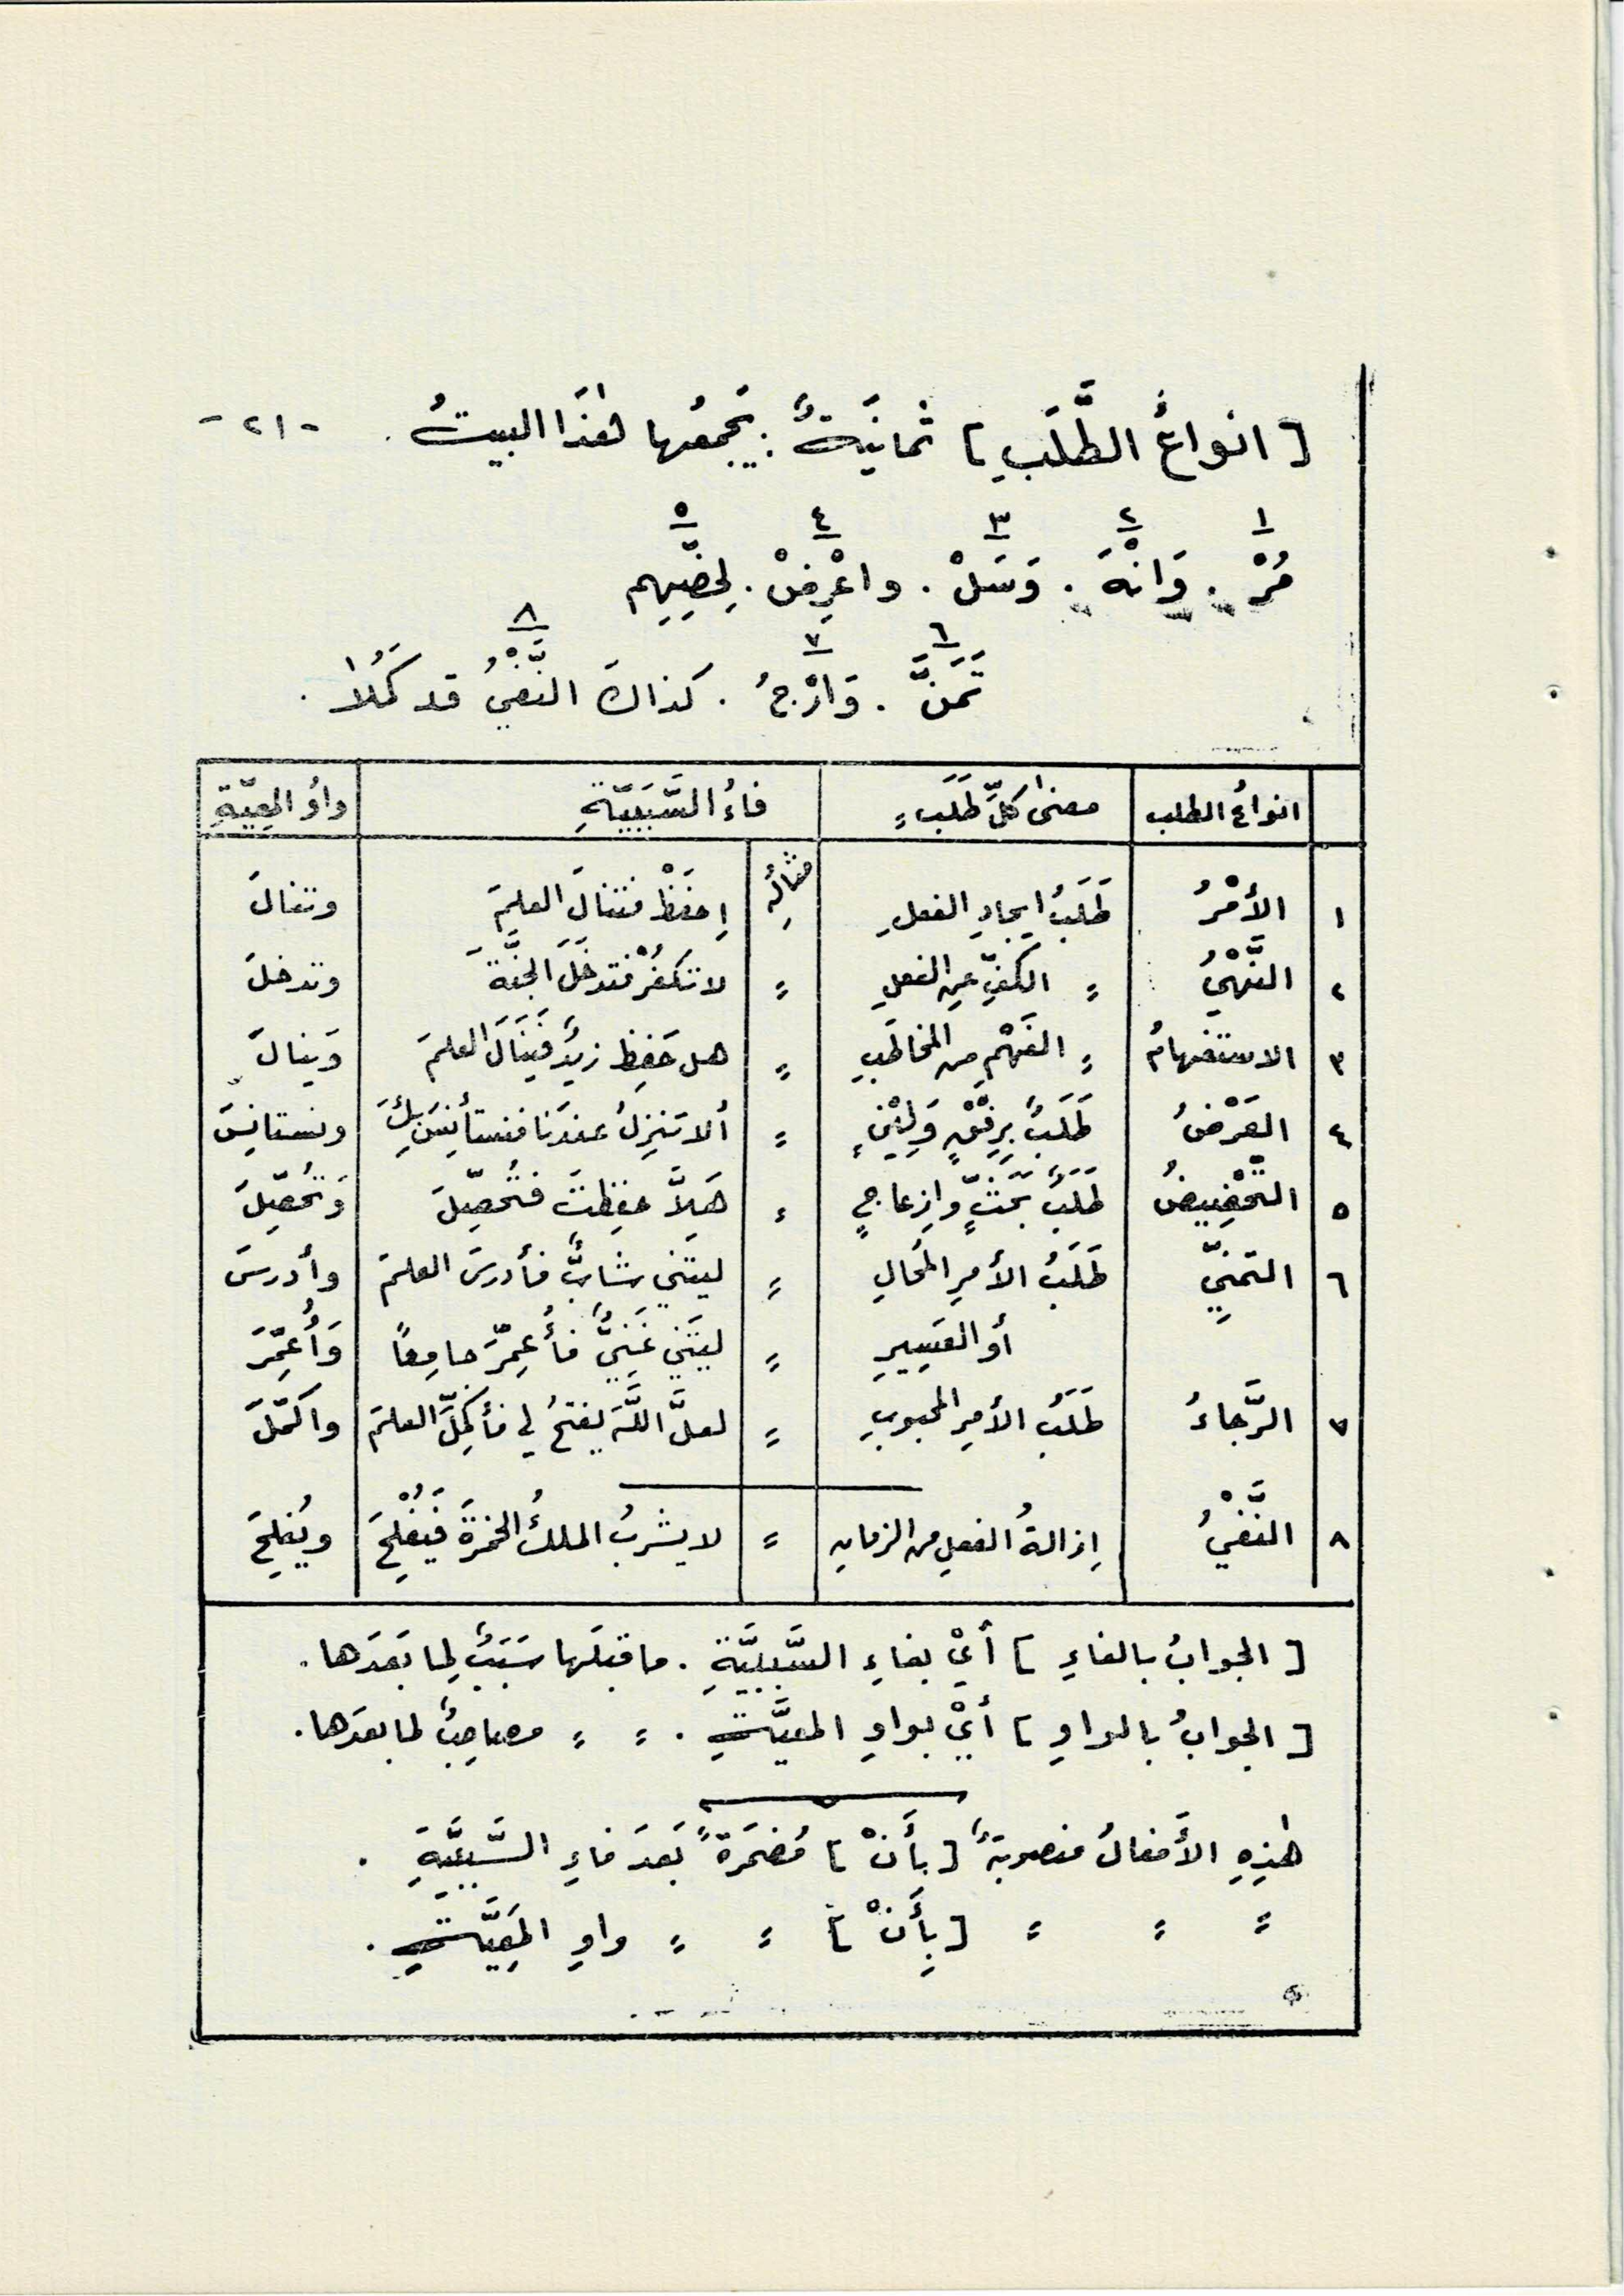 [ انواعُ الطَّلَبِ ] ثمانيَةٌ : يَجمعُها هٰذَا البيتُ . - ٢١ -
١ ٢ ٣ ٤ ٥
مُرْ . وَانْهَ . وَسَلْ . واعْرِضْ . لِحَضِّهِم
٦ ٧ ٨
تَمَنَّ . وَارْجُ . كذاكَ النَّفْيُ قد كَمُلاَ .
انواعُ الطلب | معنىٰ كلِّ طَلَبٍ | فاءُ السَّبَبِيَّةِ | واوُ المعِيَّةِ
١ | الأمْرُ | طَلَبُ ايجادِ الفعلِ | مثالُه | اِحفَظْ فتنالَ العلمَ | وتنالَ
٢ | النَّهْيُ | = الكفِّ عنِ الفعلِ | = | لا تكفُرْ فتدخلَ الجنَّةَ | وتدخلَ
٣ | الاستفهامُ | = الفَهْمِ من المخاطَبِ | = | هل حَفِظ زيدٌ فيَنَالَ العلمَ | وَينالَ
٤ | العَرْضُ | طَلَبٌ بِرِفْقٍ وَلِيْنٍ | = | ألا تنزِلُ عندَنا فنستأنِسَ بِكَ | ونستانِسَ
٥ | التحْضِيضُ | طَلَبٌ بَحثٍّ وإزعاجٍ | = | هَلاَّ حفِظتَ فتُحصِّلَ | وَتُحصِّلَ
٦ | التمنِّي | طَلَبُ الأمرِ المُحالِ | = | ليتَني شابٌّ فأدرسَ العلمَ | وأدرسَ
أو العَسِيرِ | = | ليتَني غَنِيٌّ فأُعمِّرَ جامِعًا | وَأُعمِّرَ
٧ | الرَّجاءُ | طَلَبُ الأمرِ المحبوبِ | = | لعلَّ اللَّهَ يفتحُ لي فأُكمِلَ العلمَ | واكمّلَ
٨ | النَّفْيُ | إزالةُ الفعلِ من الزمانِ | = | لا يشربُ الملكُ الخمرَةَ فَيُفْلِحَ | ويُفلِحَ
[ الجوابُ بالفاءِ ] أيْ بفاءِ السَّببِيَّةِ . ما قبلَها سَبَبٌ لِما بَعدَها .
[ الجوابُ بالواوِ ] أيْ بواوِ المعيَّةِ . = = مصاحِبٌ لما بعدَها .
هٰذِهِ الأفعالُ منصوبَةٌ [ بأَنْ ] مُضمَرَةً بَعدَ فاءِ السَّببِيَّةِ .
= = = [ بِأَنْ ] = = واوِ المَعِيَّةِ .